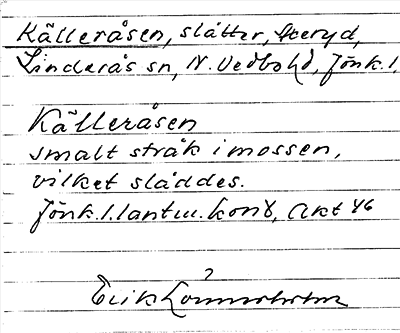 Källeråsen, slåtter, Steryd,
Linderås sn, N. Vedbo hd, Jönk. l.
Källeråsen
smalt stråk i mossen,
vilket slåddes.
Jönk. l. lantm. kont, Akt 46
?
Erik